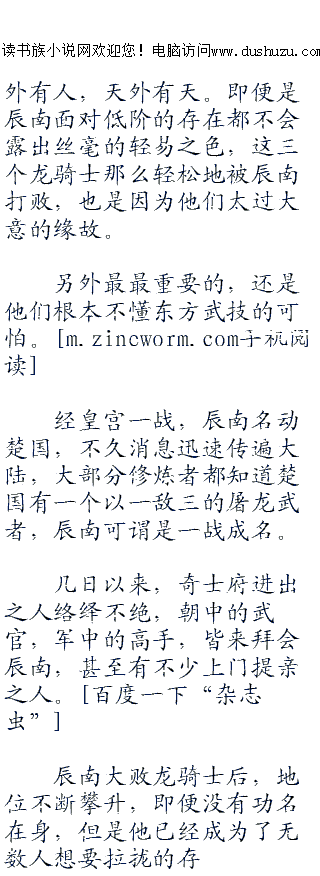 读书族小说网欢迎您！电脑访问www.dushuzu.com
外有人，天外有天。即便是
辰南面对低阶的存在都不会
露出丝毫的轻易之色，这三
个龙骑士那么轻松地被辰南
打败，也是因为他们太过大
意的缘故。
另外最最重要的，还是
他们根本不懂东方武技的可
怕。[m.zincworm.com手机阅
读]
经皇宫一战，辰南名动
楚国，不久消息迅速传遍大
陆，大部分修炼者都知道楚
国有一个以一敌三的屠龙武
者，辰南可谓是一战成名。
几日以来，奇士府进出
之人络绎不绝，朝中的武
官，军中的高手，皆来拜会
辰南，甚至有不少上门提亲
之人。[百度一下“杂志
虫”]
辰南大败龙骑士后，地
位不断攀升，即便没有功名
在身，但是他已经成为了无
数人想要拉拢的存